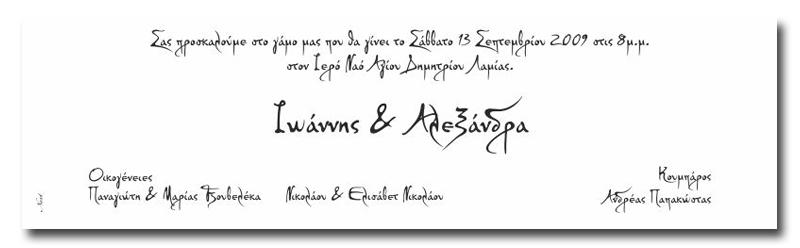 Σας προσκαλούμε στο γάμο μας που θα γίνει το Σάββατο 13 Σεπτεμβρίου 2009 στις 8μ.μ.
στον Ιερό Ναό Αγίου Δημητρίου Λαμίας.
Ιωάννης & Αλεξάνδρα
Οικογένειες
Παναγιώτη & Μαρίας Τζουβελέκα Νικολάου & Ελισάβετ Νικολάου
Κουμπάρος
Ανδρέας Παπακώστας